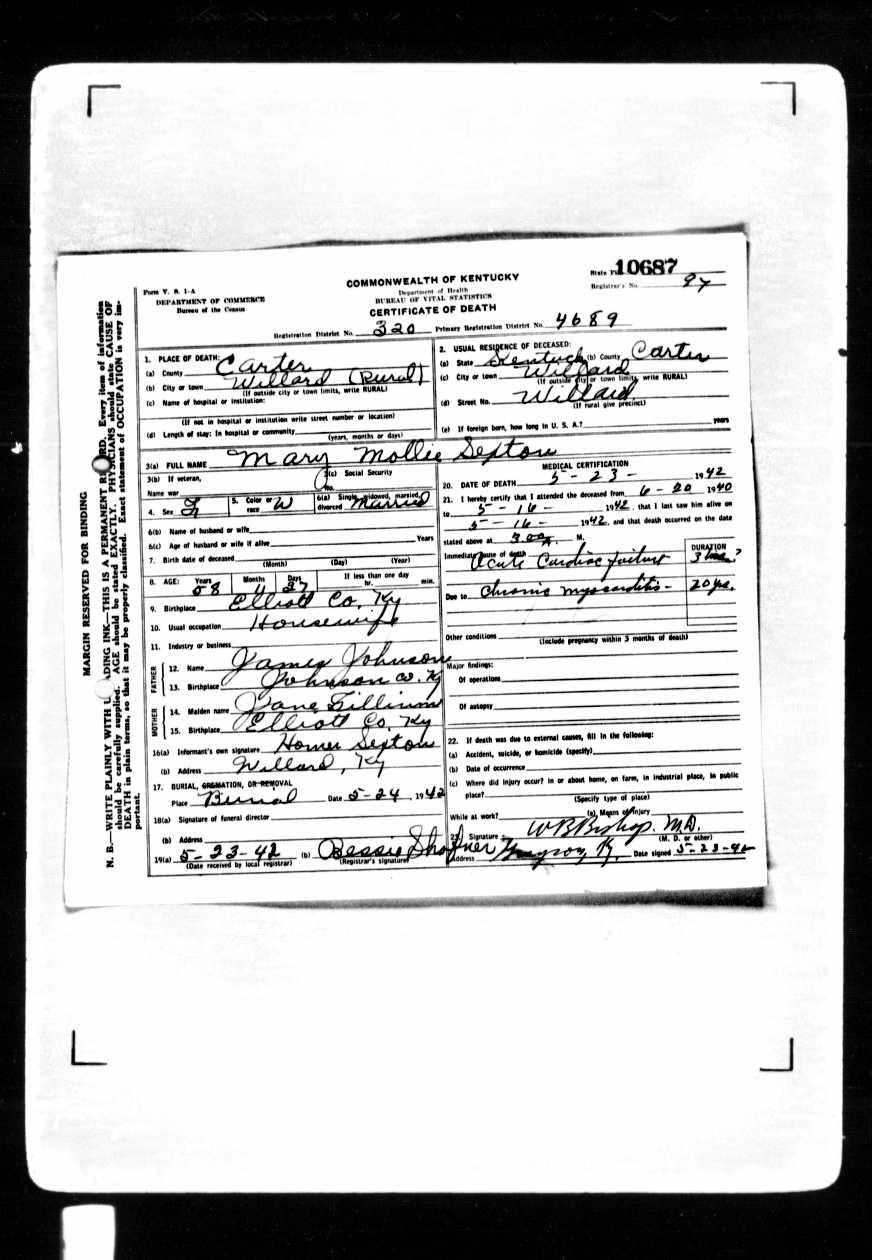 Form V. S. 1-A
DEPARTMENT OF COMMERCE
Bureau of the Census
COMMONWEALTH OF KENTUCKY
Department of Health
BUREAU OF VITAL STATISTICS
CERTIFICATE OF DEATH
State File 10687
Registrar's No. 97
Registration District No. 320 Primary Registration District No. 4689
MARGIN RESERVED FOR BINDING
N. B.—WRITE PLAINLY WITH UNFADING INK—THIS IS A PERMANENT RECORD. Every item of information
should be carefully supplied. AGE should be stated EXACTLY. PHYSICIANS should state CAUSE OF
DEATH in plain terms, so that it may be properly classified. Exact statement of OCCUPATION is very im-
portant.
1. PLACE OF DEATH:
(a) County Carter
(b) City or town Willard (Rural)
(If outside city or town limits, write RURAL)
(c) Name of hospital or institution:
(If not in hospital or institution write street number or location)
(d) Length of stay: In hospital or community
(years, months or days)
2. USUAL RESIDENCE OF DECEASED:
(a) State Kentucky (b) County Carter
(c) City or town Willard
(If outside city or town limits, write RURAL)
(d) Street No. Willard
(If rural give precinct)
(e) If foreign born, how long in U. S. A.? years
3(a) FULL NAME Mary Mollie Sexton
3(b) If veteran,
Name war
3(c) Social Security
No.
4. Sex F 5. Color or race W 6(a) Single, widowed, married, divorced Married
6(b) Name of husband or wife
6(c) Age of husband or wife if alive Years
7. Birth date of deceased
(Month) (Day) (Year)
8. AGE: Years 58 Months 4 Days 27 If less than one day
hr. min.
9. Birthplace Elliott Co. Ky
10. Usual occupation Housewife
11. Industry or business
FATHER
12. Name James Johnson
13. Birthplace Johnson Co. Ky
MOTHER
14. Maiden name Jane
15. Birthplace Elliott Co. Ky
16(a) Informant's own signature Homer Sexton
(b) Address Willard, Ky
17. BURIAL, CREMATION, OR REMOVAL
Place Burial Date 5-24, 1942
18(a) Signature of funeral director
(b) Address
19(a) 5-23-42 (b) Bessie Shofner
(Date received by local registrar) (Registrar's signature)
MEDICAL CERTIFICATION
20. DATE OF DEATH 5-23- 1942
21. I hereby certify that I attended the deceased from 6-20 1940
to 5-16- 1942, that I last saw him alive on
5-16- 1942, and that death occurred on the date
stated above at 3:00 A. M.
Immediate cause of death DURATION
Acute Cardiac failure 3 hrs?
Due to Chronic myocarditis- 20 yrs.
Other conditions
(Include pregnancy within 3 months of death)
Major findings:
Of operations
Of autopsy
22. If death was due to external causes, fill in the following:
(a) Accident, suicide, or homicide (specify)
(b) Date of occurrence
(c) Where did injury occur? In or about home, on farm, in industrial place, in public
place?
(Specify type of place)
While at work? (e) Means of injury
23. Signature W B Bishop. M.D.
(M. D. or other)
Address Grayson, Ky. Date signed 5-23-42